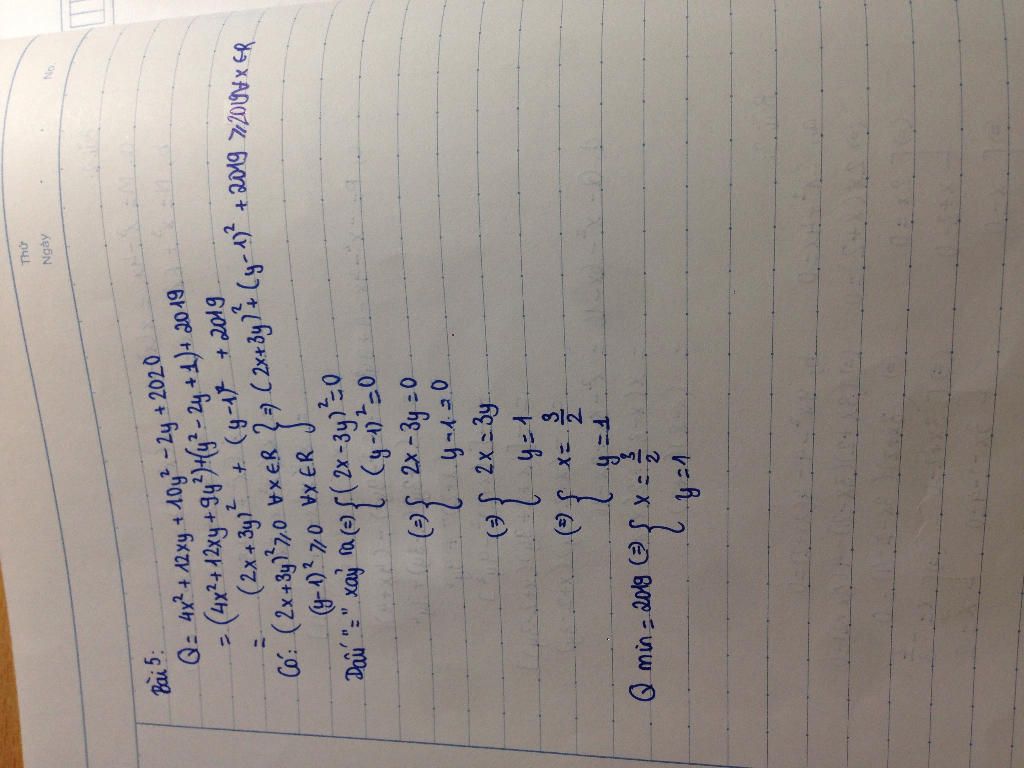 Thứ
Ngày
No.
Bài 5:
Q = 4x² + 12xy + 10y² - 2y + 2020
= (4x² + 12xy + 9y²) + (y² - 2y + 1) + 2019
= (2x + 3y)² + (y - 1)² + 2019
Có: (2x + 3y)² ≥ 0 ∀x ∈ R } => (2x + 3y)² + (y - 1)² + 2019 ≥ 2019 ∀x ∈ R
(y - 1)² ≥ 0 ∀x ∈ R
Dấu "=" xảy ra (=) { (2x - 3y)² = 0
(y - 1)² = 0
(=) { 2x - 3y = 0
y - 1 = 0
(=) { 2x = 3y
y = 1
(=) { x = 3/2
y = 1
Q min = 2019 (=) { x = 3/2
y = 1